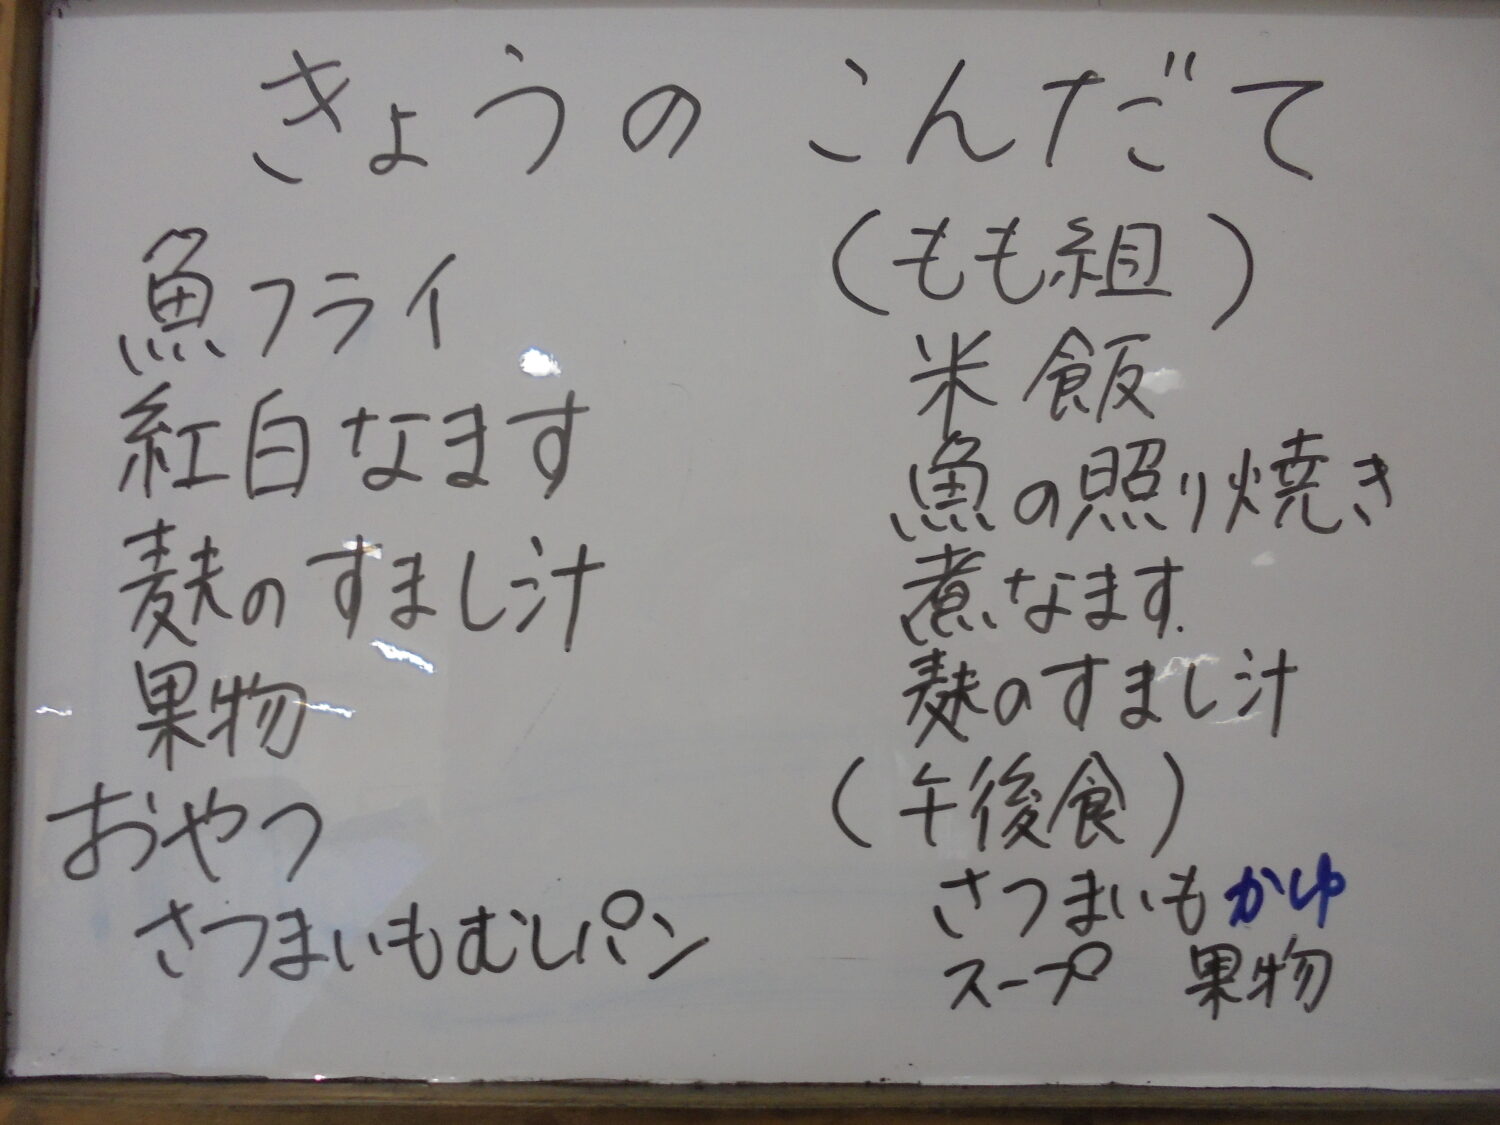 きょうの こんだて
魚フライ
紅白なます
麩のすまし汁
果物
おやつ
さつまいもむしパン
(もも組)
米飯
魚の照り焼き
煮なます
麩のすまし汁
(午後食)
さつまいもかゆ
スープ 果物